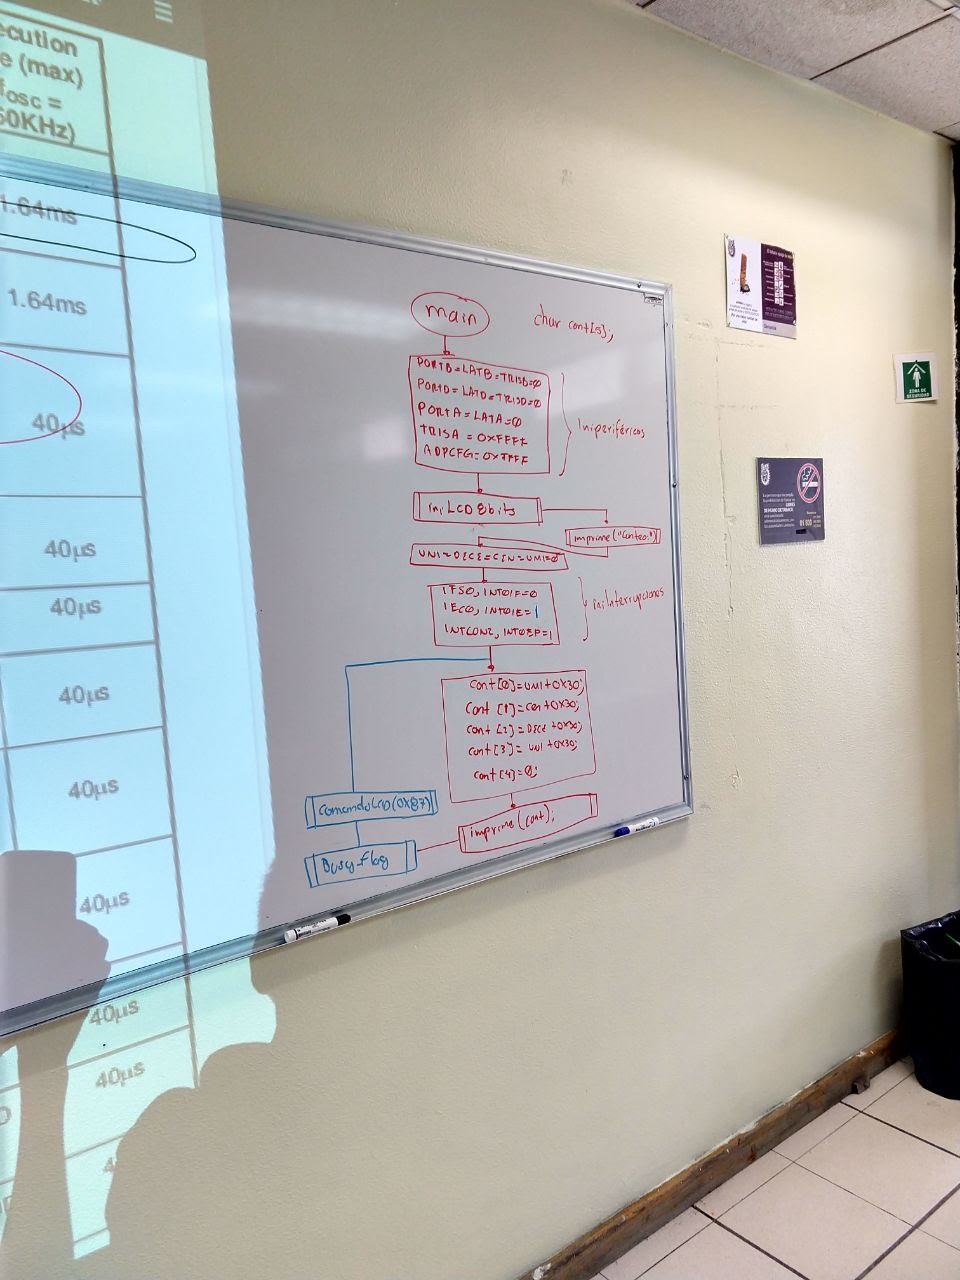 ecution
e (max)
fosc =
50KHz)
1.64ms
1.64ms
40µs
40µs
40µs
40µs
40µs
40µs
40µs
40µs
main
char cont[5];
PORTB=LATB=TRISB=0
PORTD=LATD=TRISD=0
PORTA=LATA=0
TRISA=0XFFFF
ADPCFG=0XFFFF
Iniperiféricos
iniLCD8bits
imprime("Conteo:")
UNI=DECE=CEN=UMI=0
IFS0, INT0IF=0
IEC0, INT0IE=1
INTCON2, INT0EP=1
iniInterrupciones
cont[0]=UMI+0X30;
cont [1]=cen+0X30;
cont [2]=Dece+0x30;
cont[3]= uni+0x30;
cont[4]=0;
comandoLCD(0X87)
imprime(cont);
Busy flag
ZONA DE
SEGURIDAD